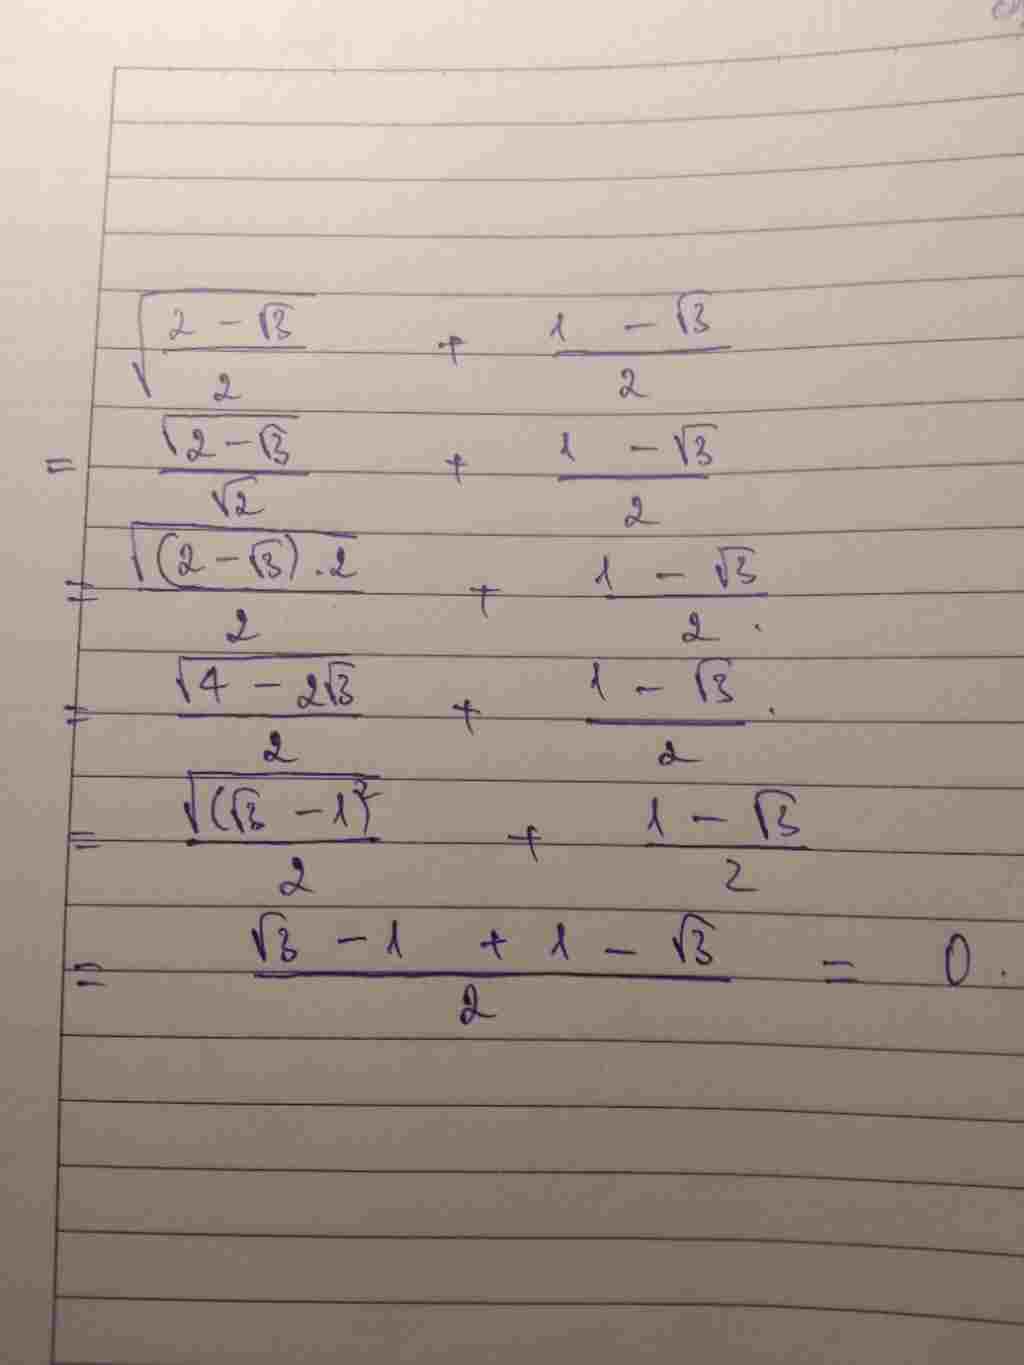 √((2 - √3)/2) + (1 - √3)/2
= √(2 - √3)/√2 + (1 - √3)/2
= √((2 - √3).2)/2 + (1 - √3)/2.
= √(4 - 2√3)/2 + (1 - √3)/2.
= √((√3 - 1)²)/2 + (1 - √3)/2
= (√3 - 1 + 1 - √3)/2 = 0.